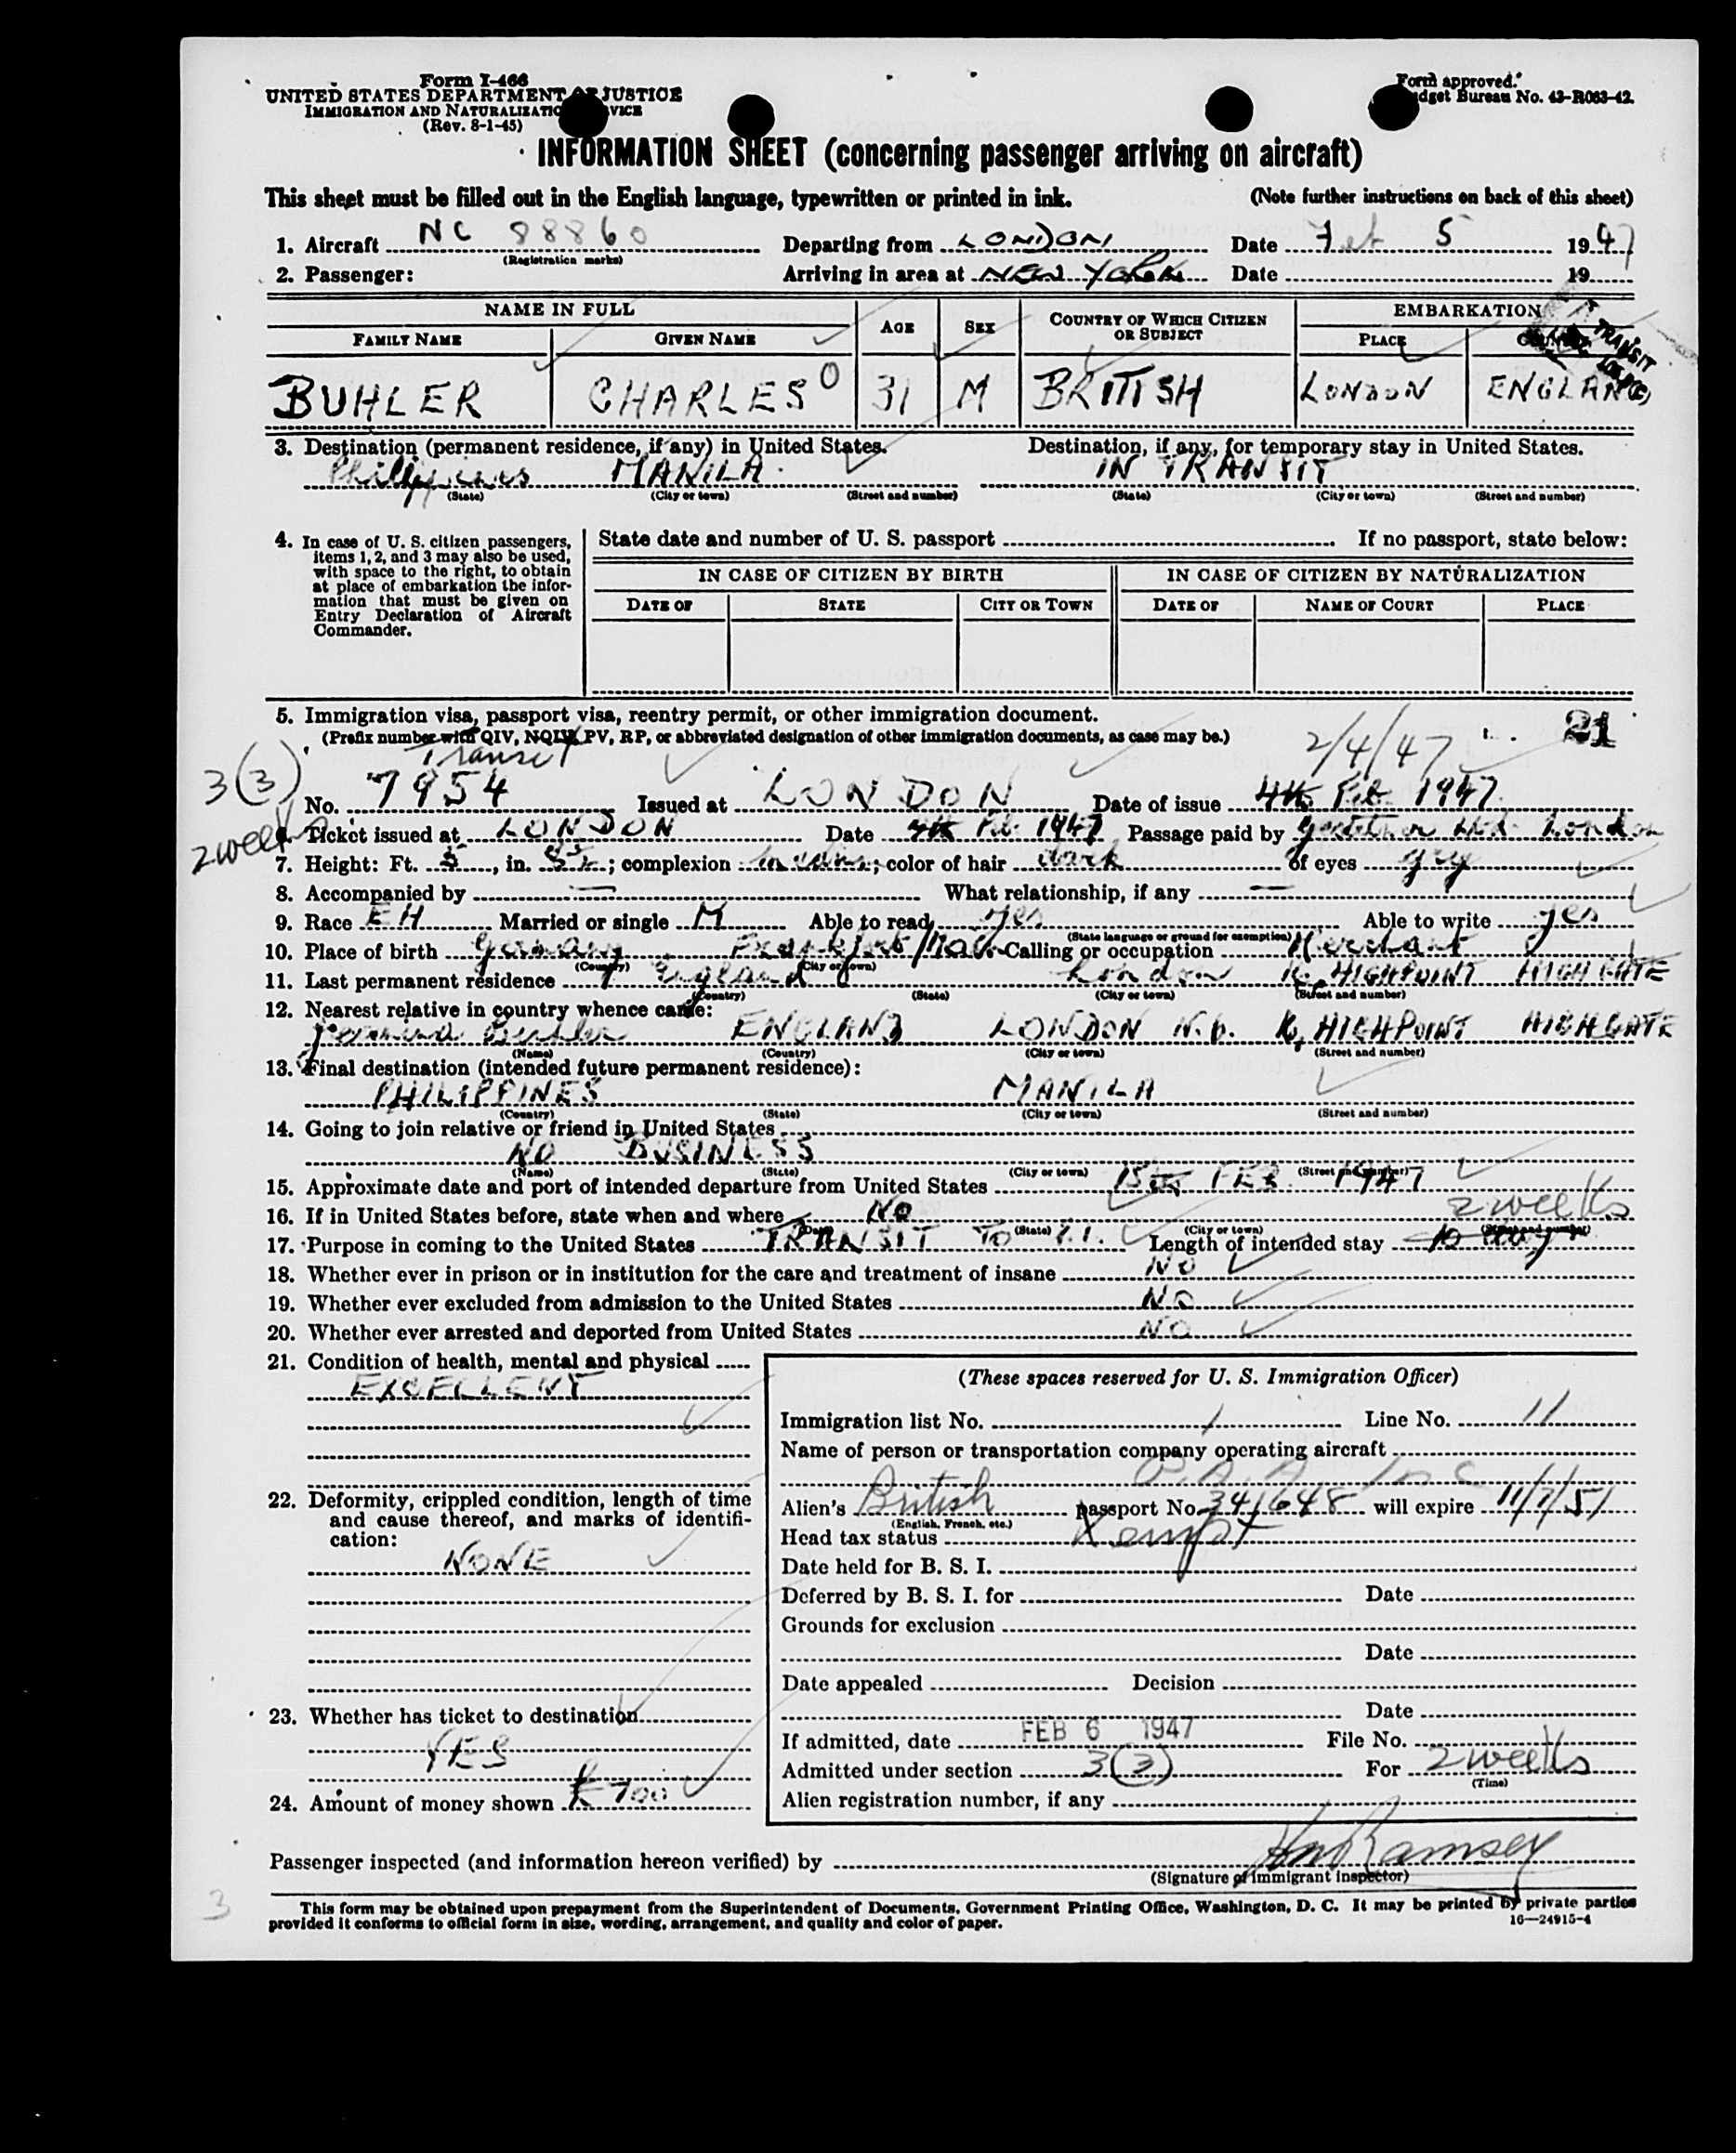 Form I-466
UNITED STATES DEPARTMENT OF JUSTICE
IMMIGRATION AND NATURALIZATION SERVICE
(Rev. 8-1-45)
Form approved.
Budget Bureau No. 43-R063-42.
INFORMATION SHEET (concerning passenger arriving on aircraft)
This sheet must be filled out in the English language, typewritten or printed in ink. (Note further instructions on back of this sheet)
1. Aircraft NC 88860 Departing from LONDON Date Feb 5 1947
(Registration marks)
2. Passenger: Arriving in area at NEW YORK Date 19
NAME IN FULL AGE SEX COUNTRY OF WHICH CITIZEN OR SUBJECT EMBARKATION
FAMILY NAME GIVEN NAME PLACE COUNTRY
TRANSIT
BUHLER CHARLES O 31 M BRITISH LONDON ENGLAND
3. Destination (permanent residence, if any) in United States. Destination, if any, for temporary stay in United States.
Philippines MANILA. IN TRANSIT
(State) (City or town) (Street and number) (State) (City or town) (Street and number)
4. In case of U. S. citizen passengers, items 1, 2, and 3 may also be used, with space to the right, to obtain at place of embarkation the information that must be given on Entry Declaration of Aircraft Commander.
State date and number of U. S. passport If no passport, state below:
IN CASE OF CITIZEN BY BIRTH IN CASE OF CITIZEN BY NATURALIZATION
DATE OF STATE CITY OR TOWN DATE OF NAME OF COURT PLACE
5. Immigration visa, passport visa, reentry permit, or other immigration document.
(Prefix number with QIV, NQIV, PV, RP, or abbreviated designation of other immigration documents, as case may be.)
Transit 2/4/47 21
3(3)
No. 7954 Issued at LONDON Date of issue 4th Feb 1947
2 weeks
6. Ticket issued at LONDON Date 4th Feb. 1947 Passage paid by Ltd. London
7. Height: Ft. 5, in. 8½; complexion medium; color of hair dark of eyes grey
8. Accompanied by — What relationship, if any —
9. Race EH Married or single M Able to read yes Able to write yes
(State language or ground for exemption)
10. Place of birth Germany Frankfurt/Main Calling or occupation Merchant
(Country) (City or town)
11. Last permanent residence England London HIGHPOINT HIGHGATE
(Country) (State) (City or town) (Street and number)
12. Nearest relative in country whence came:
Buhler ENGLAND LONDON N.6. HIGHPOINT HIGHGATE
(Name) (Country) (City or town) (Street and number)
13. Final destination (intended future permanent residence):
PHILIPPINES MANILA
(Country) (State) (City or town) (Street and number)
14. Going to join relative or friend in United States
NO BUSINESS
(Name) (State) (City or town) (Street and number)
15. Approximate date and port of intended departure from United States 15th FEB. 1947
16. If in United States before, state when and where NO 2 weeks
(Date) (State) (City or town) (Street and number)
17. Purpose in coming to the United States TRANSIT TO P.I. Length of intended stay 10 days
18. Whether ever in prison or in institution for the care and treatment of insane NO
19. Whether ever excluded from admission to the United States NO
20. Whether ever arrested and deported from United States NO
21. Condition of health, mental and physical
EXCELLENT
22. Deformity, crippled condition, length of time and cause thereof, and marks of identification:
NONE
23. Whether has ticket to destination
YES
24. Amount of money shown £ 700
(These spaces reserved for U. S. Immigration Officer)
Immigration list No. 1 Line No. 11
Name of person or transportation company operating aircraft
P.A.A Inc
Alien's British passport No. 341648 will expire 11/7/51
(English, French, etc.)
Head tax status Xempt
Date held for B. S. I.
Deferred by B. S. I. for Date
Grounds for exclusion
Date
Date appealed Decision
Date
If admitted, date FEB 6 1947 File No.
Admitted under section 3(3) For 2 weeks
(Time)
Alien registration number, if any
Passenger inspected (and information hereon verified) by Ramsey
(Signature of immigrant inspector)
3
This form may be obtained upon prepayment from the Superintendent of Documents, Government Printing Office, Washington, D. C. It may be printed by private parties
provided it conforms to official form in size, wording, arrangement, and quality and color of paper. 16—24915-4